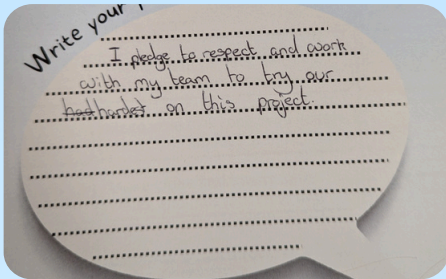 Write your
I pledge to respect and work
with my team to try our
hardest on this project.